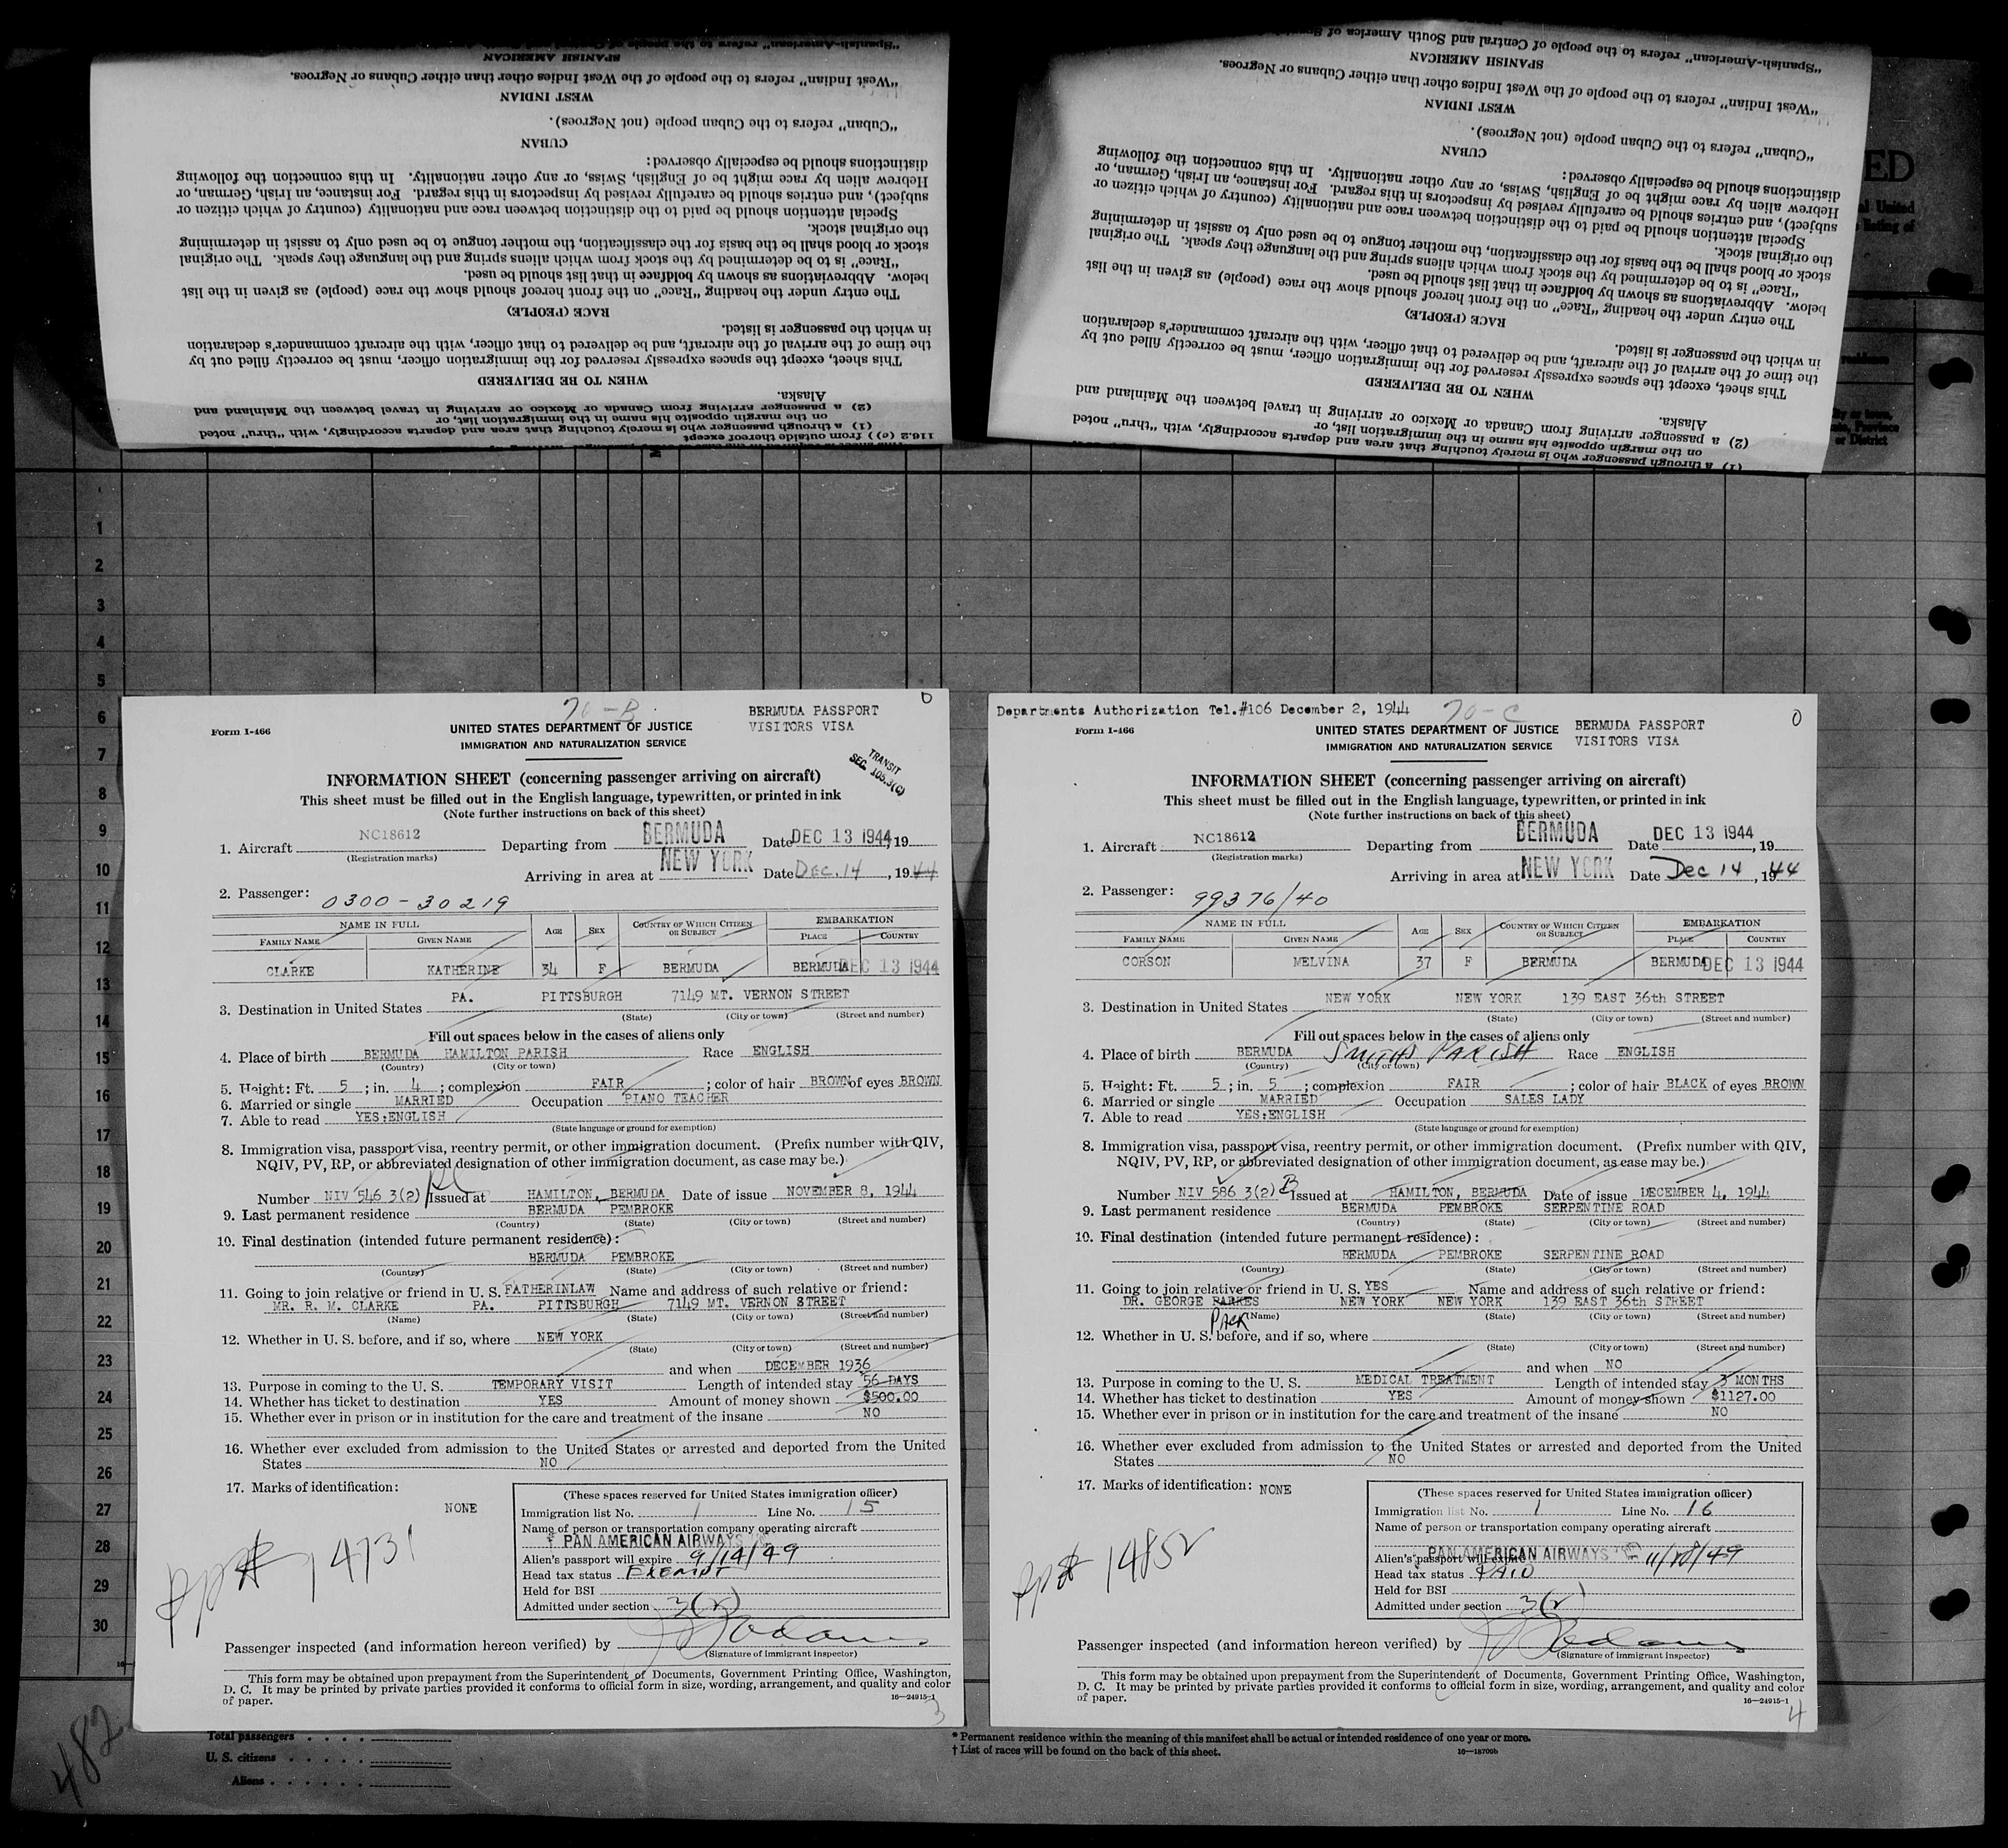 "Spanish-American" refers to the people of Central and South America of
SPANISH AMERICAN
"West Indian" refers to the people of the West Indies other than either Cubans or Negroes.
WEST INDIAN
"Cuban" refers to the Cuban people (not Negroes).
CUBAN
distinctions should be especially observed:
Hebrew alien by race might be of English, Swiss, or any other nationality. In this connection the following
subject), and entries should be carefully revised by inspectors in this regard. For instance, an Irish, German, or
Special attention should be paid to the distinction between race and nationality (country of which citizen or
the original stock.
stock or blood shall be the basis for the classification, the mother tongue to be used only to assist in determining
"Race" is to be determined by the stock from which aliens spring and the language they speak. The original
below. Abbreviations as shown by boldface in that list should be used.
The entry under the heading "Race" on the front hereof should show the race (people) as given in the list
RACE (PEOPLE)
in which the passenger is listed.
the time of the arrival of the aircraft, and be delivered to that officer, with the aircraft commander's declaration
This sheet, except the spaces expressly reserved for the immigration officer, must be correctly filled out by
WHEN TO BE DELIVERED
Alaska.
(2) a passenger arriving from Canada or Mexico or arriving in travel between the Mainland and
on the margin opposite his name in the immigration list, or
(1) a through passenger who is merely touching that area and departs accordingly, with "thru" noted
116.2 (c) ) from outside thereof except
"Spanish-American" refers to the people of Central and South America of
SPANISH AMERICAN
"West Indian" refers to the people of the West Indies other than either Cubans or Negroes.
WEST INDIAN
"Cuban" refers to the Cuban people (not Negroes).
CUBAN
distinctions should be especially observed:
Hebrew alien by race might be of English, Swiss, or any other nationality. In this connection the following
subject), and entries should be carefully revised by inspectors in this regard. For instance, an Irish, German, or
Special attention should be paid to the distinction between race and nationality (country of which citizen or
the original stock.
stock or blood shall be the basis for the classification, the mother tongue to be used only to assist in determining
"Race" is to be determined by the stock from which aliens spring and the language they speak. The original
below. Abbreviations as shown by boldface in that list should be used.
The entry under the heading "Race" on the front hereof should show the race (people) as given in the list
RACE (PEOPLE)
in which the passenger is listed.
the time of the arrival of the aircraft, and be delivered to that officer, with the aircraft commander's declaration
This sheet, except the spaces expressly reserved for the immigration officer, must be correctly filled out by
WHEN TO BE DELIVERED
Alaska.
(2) a passenger arriving from Canada or Mexico or arriving in travel between the Mainland and
on the margin opposite his name in the immigration list, or
(1) a through passenger who is merely touching that area and departs accordingly, with "thru" noted
ED
United
listing of
or District
1
2
3
4
5
6
7
8
9
10
11
12
13
14
15
16
17
18
19
20
21
22
23
24
25
26
27
28
29
30
70-B
0
BERMUDA PASSPORT
VISITORS VISA
Form I-466
UNITED STATES DEPARTMENT OF JUSTICE
IMMIGRATION AND NATURALIZATION SERVICE
TRANSIT
SEC. 105.3(C)
INFORMATION SHEET (concerning passenger arriving on aircraft)
This sheet must be filled out in the English language, typewritten, or printed in ink
(Note further instructions on back of this sheet)
1. Aircraft NC18612 Departing from BERMUDA Date DEC 13 1944, 19
(Registration marks)
Arriving in area at NEW YORK Date DEC. 14, 1944
2. Passenger: 0300-30219
NAME IN FULL AGE SEX COUNTRY OF WHICH CITIZEN OR SUBJECT EMBARKATION
FAMILY NAME GIVEN NAME PLACE COUNTRY
CLARKE KATHERINE 34 F BERMUDA BERMUDA DEC 13 1944
3. Destination in United States PA. PITTSBURGH 7149 MT. VERNON STREET
(State) (City or town) (Street and number)
Fill out spaces below in the cases of aliens only
4. Place of birth BERMUDA HAMILTON PARISH Race ENGLISH
(Country) (City or town)
5. Height: Ft. 5; in. 4; complexion FAIR; color of hair BROWN of eyes BROWN
6. Married or single MARRIED Occupation PIANO TEACHER
7. Able to read YES:ENGLISH
(State language or ground for exemption)
8. Immigration visa, passport visa, reentry permit, or other immigration document. (Prefix number with QIV,
NQIV, PV, RP, or abbreviated designation of other immigration document, as case may be.)
Number NIV 546 3(2) Issued at HAMILTON, BERMUDA Date of issue NOVEMBER 8, 1944
9. Last permanent residence BERMUDA PEMBROKE
(Country) (State) (City or town) (Street and number)
10. Final destination (intended future permanent residence):
BERMUDA PEMBROKE
(Country) (State) (City or town) (Street and number)
11. Going to join relative or friend in U. S. FATHERINLAW Name and address of such relative or friend:
MR. R. M. CLARKE PA. PITTSBURGH 7149 MT. VERNON STREET
(Name) (State) (City or town) (Street and number)
12. Whether in U. S. before, and if so, where NEW YORK
(State) (City or town) (Street and number)
and when DECEMBER 1936
13. Purpose in coming to the U. S. TEMPORARY VISIT Length of intended stay 56 DAYS
14. Whether has ticket to destination YES Amount of money shown $500.00
15. Whether ever in prison or in institution for the care and treatment of the insane NO
16. Whether ever excluded from admission to the United States or arrested and deported from the United
States NO
17. Marks of identification:
NONE
pp# 14731
(These spaces reserved for United States immigration officer)
Immigration list No. 1 Line No. 15
Name of person or transportation company operating aircraft
PAN AMERICAN AIRWAYS
Alien's passport will expire 9/14/49
Head tax status EXEMPT
Held for BSI
Admitted under section 3(2)
Passenger inspected (and information hereon verified) by
(Signature of immigrant inspector)
This form may be obtained upon prepayment from the Superintendent of Documents, Government Printing Office, Washington,
D. C. It may be printed by private parties provided it conforms to official form in size, wording, arrangement, and quality and color
of paper.
16—24915-1
3
Departments Authorization Tel.#106 December 2, 1944
70-C
0
BERMUDA PASSPORT
VISITORS VISA
Form I-466
UNITED STATES DEPARTMENT OF JUSTICE
IMMIGRATION AND NATURALIZATION SERVICE
INFORMATION SHEET (concerning passenger arriving on aircraft)
This sheet must be filled out in the English language, typewritten, or printed in ink
(Note further instructions on back of this sheet)
1. Aircraft NC18612 Departing from BERMUDA Date DEC 13 1944, 19
(Registration marks)
Arriving in area at NEW YORK Date Dec 14, 1944
2. Passenger: 99376/40
NAME IN FULL AGE SEX COUNTRY OF WHICH CITIZEN OR SUBJECT EMBARKATION
FAMILY NAME GIVEN NAME PLACE COUNTRY
CORSON MELVINA 37 F BERMUDA BERMUDA DEC 13 1944
3. Destination in United States NEW YORK NEW YORK 139 EAST 36th STREET
(State) (City or town) (Street and number)
Fill out spaces below in the cases of aliens only
4. Place of birth BERMUDA SMITHS PARISH Race ENGLISH
(Country) (City or town)
5. Height: Ft. 5; in. 5; complexion FAIR; color of hair BLACK of eyes BROWN
6. Married or single MARRIED Occupation SALES LADY
7. Able to read YES:ENGLISH
(State language or ground for exemption)
8. Immigration visa, passport visa, reentry permit, or other immigration document. (Prefix number with QIV,
NQIV, PV, RP, or abbreviated designation of other immigration document, as case may be.)
Number NIV 586 3(2) B Issued at HAMILTON, BERMUDA Date of issue DECEMBER 4, 1944
9. Last permanent residence BERMUDA PEMBROKE SERPENTINE ROAD
(Country) (State) (City or town) (Street and number)
10. Final destination (intended future permanent residence):
BERMUDA PEMBROKE SERPENTINE ROAD
(Country) (State) (City or town) (Street and number)
11. Going to join relative or friend in U. S. YES Name and address of such relative or friend:
DR. GEORGE PARKES NEW YORK NEW YORK 139 EAST 36th STREET
PACK (Name) (State) (City or town) (Street and number)
12. Whether in U. S. before, and if so, where
(State) (City or town) (Street and number)
and when NO
13. Purpose in coming to the U. S. MEDICAL TREATMENT Length of intended stay 3 MONTHS
14. Whether has ticket to destination YES Amount of money shown $1127.00
15. Whether ever in prison or in institution for the care and treatment of the insane NO
16. Whether ever excluded from admission to the United States or arrested and deported from the United
States NO
17. Marks of identification: NONE
pp# 14852
(These spaces reserved for United States immigration officer)
Immigration list No. 1 Line No. 16
Name of person or transportation company operating aircraft
PAN AMERICAN AIRWAYS
Alien's passport will expire
Head tax status PAID
Held for BSI
Admitted under section 3(2)
Passenger inspected (and information hereon verified) by
(Signature of immigrant inspector)
This form may be obtained upon prepayment from the Superintendent of Documents, Government Printing Office, Washington,
D. C. It may be printed by private parties provided it conforms to official form in size, wording, arrangement, and quality and color
of paper.
16—24915-1
4
482
Total passengers
U. S. citizens
Aliens
* Permanent residence within the meaning of this manifest shall be actual or intended residence of one year or more.
† List of races will be found on the back of this sheet.
16—18700b